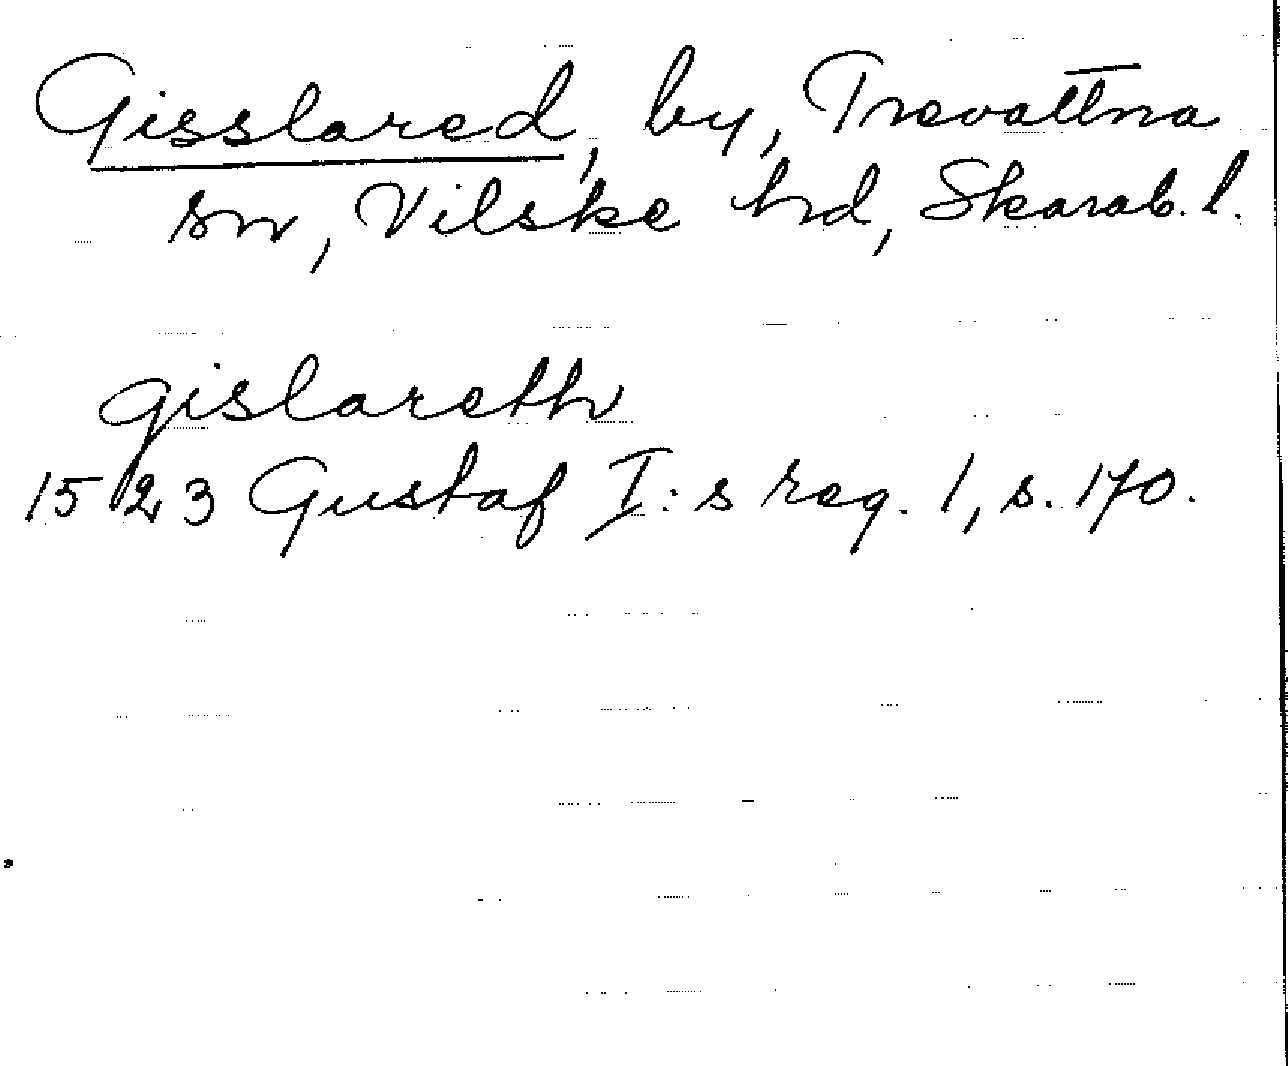 Gisslared, by, Trevattna
sn, Vilske hd, Skarab. l.
gislareth
1523 Gustaf I:s reg. 1, s. 170.